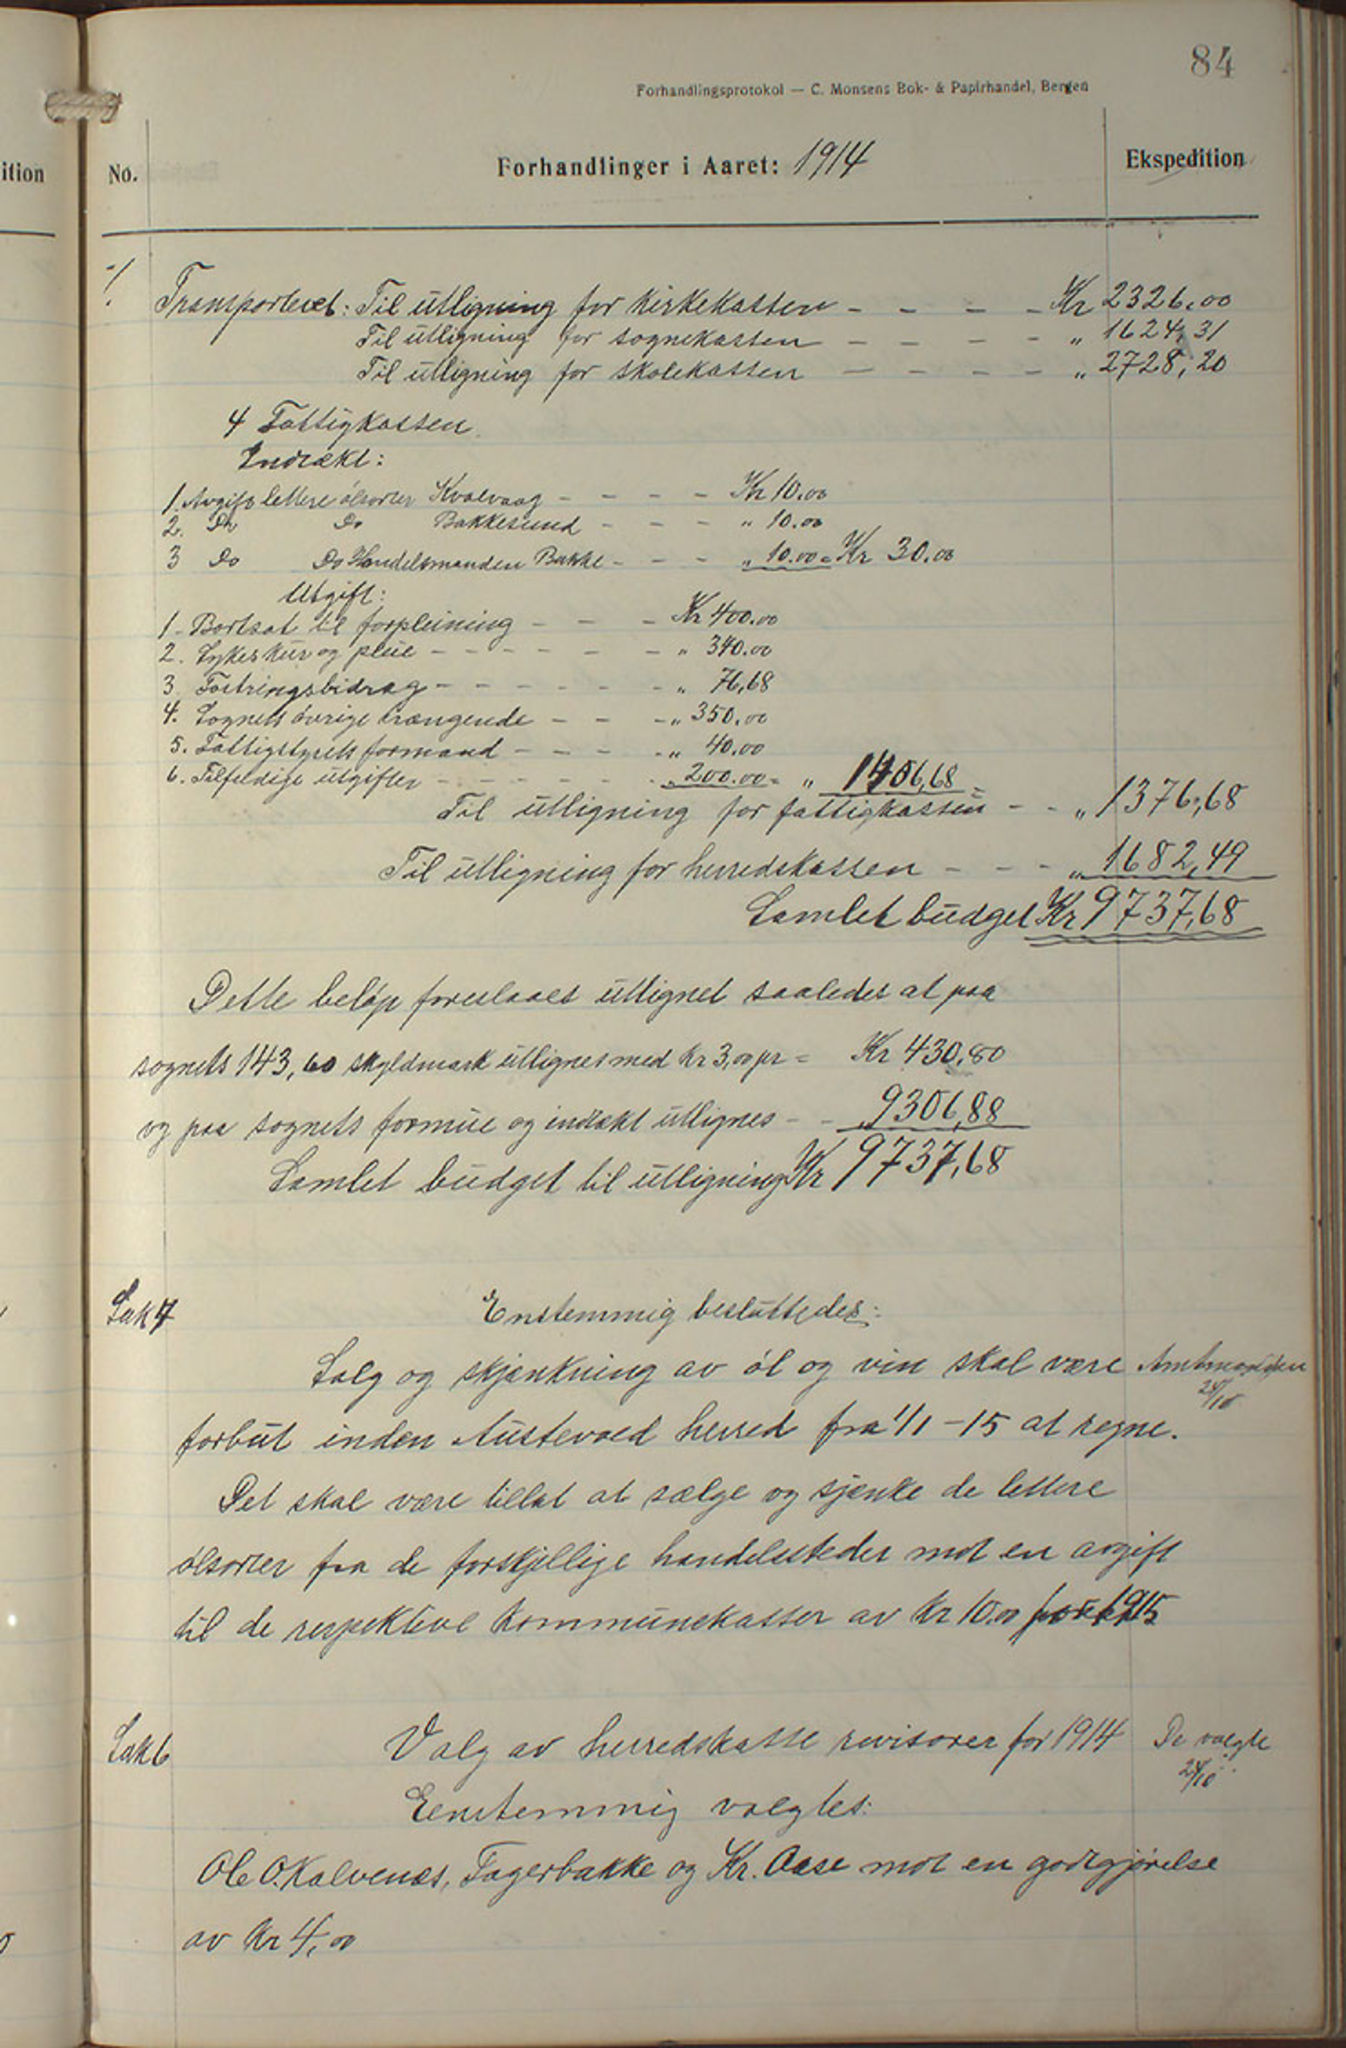 84
Forhandlingsprotokol — C. Monsens Bok- & Papirhandel, Bergen
ition
No.
Forhandlinger i Aaret: 1914
Ekspedition
Transportert: Til utligning for kirkekassen - - - - Kr 2326.00
Til utligning for sognekassen - - - - „ 1624,31
Til utligning for skolekassen - - - - „ 2728,20
4 Fattigkassen
Indtækt:
1. Avgift lettere ølsorter Kvalvaag - - - - Kr 10.00
2. Do Do Bakkesund - - - „ 10.00
3 Do Do Handelsmanden Bakke - - - „ 10.00 = Kr 30.00
Utgift:
1 - Bortsat til forpleining - - - Kr 400.00
2. Sykeskur og pleie - - - - - - „ 340.00
3 Fostringsbidrag - - - - - - „ 76,68
4. Sognets øvrige trængende - - - „ 350.00
5. Fattigstyrets formand - - - - „ 40.00
6. Tilfeldige utgifter - - - - - - „ 200.00 = „ 1406,68 =
Til utligning for fattigkassen - - „ 1376,68
Til utligning for herredskassen - - - „ 1682,49
Samlet budget Kr 9737,68
Dette beløp foreslaaes utlignet saaledes at paa
sognets 143,60 skyldmark utlignes med kr 3,00 pr = Kr 430,80
og paa sognets formue og indtækt utlignes - - „ 9306,88
Samlet budget til utligning Kr 9737,68
Sak 7
Enstemmig besluttedes:
Salg og skjænkning av øl og vin skal være
Amtmanden
24/10
forbut inden Austevold herred fra 1/1 - 15 at regne.
Det skal være tillat at sælge og sjænke de lettere
ølsorter fra de forskjellige handelssteder mot en avgift
til de respektive kommunekasser av kr 10.00 for 1915
Sak 6
Valg av herredskasse revisorer for 1914
De valgte
24/10
Eenstemmig valgtes:
Ole O. Kalvenæs, Fagerbakke og Kr. Aase mot en godtgjørelse
av kr 4,00